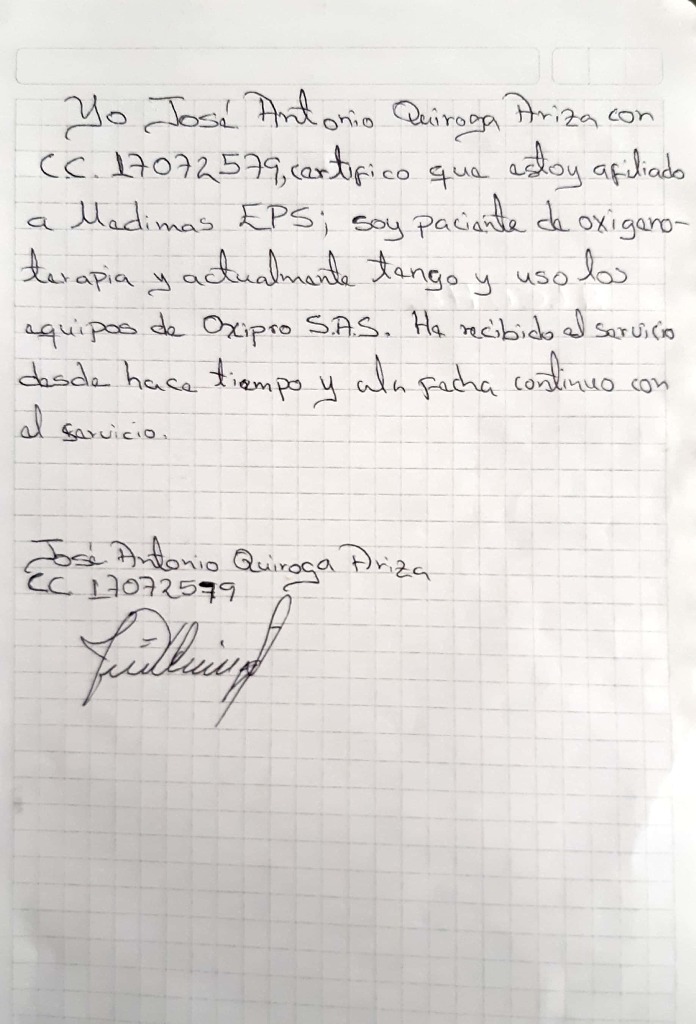 Yo José Antonio Quiroga Ariza con
CC. 17072579, certifico que estoy afiliado
a Medimas EPS; soy paciente de oxigeno-
terapia y actualmente tengo y uso los
equipos de Oxipro S.A.S. He recibido el servicio
desde hace tiempo y a la fecha continuo con
el servicio.
José Antonio Quiroga Ariza
CC 17072579